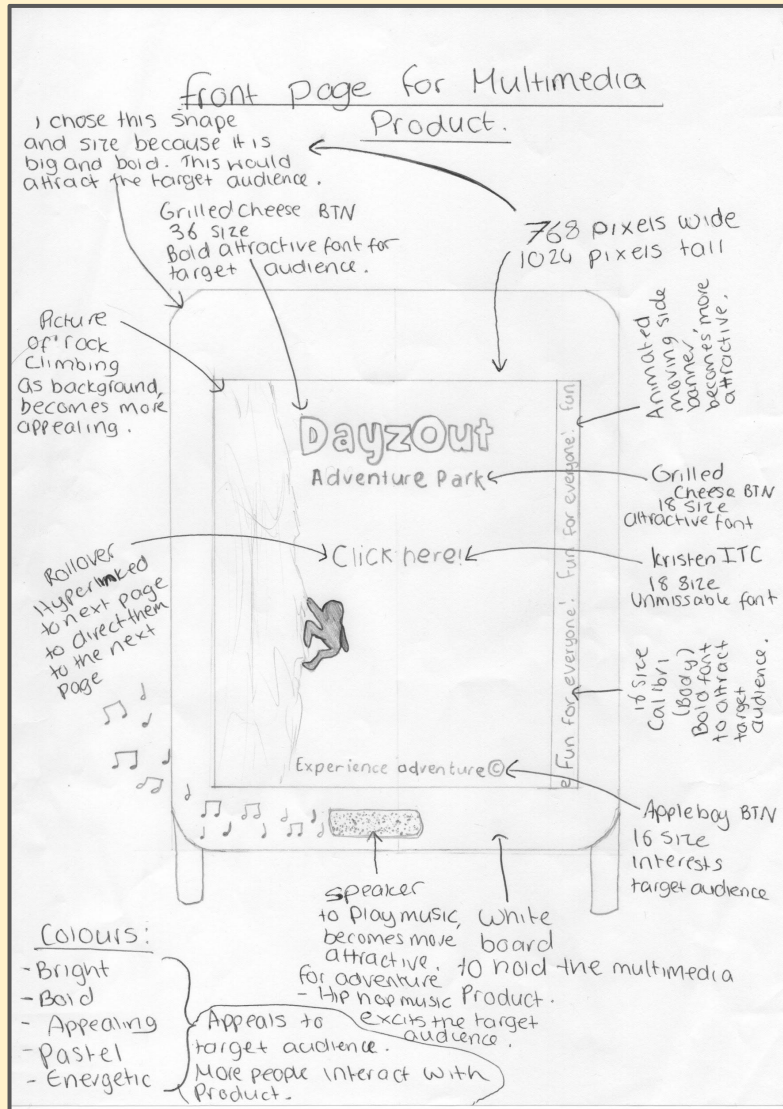 front page for Multimedia
Product.
I chose this shape
and size because it is
big and bold. This would
attract the target audience.
Grilled Cheese BTN
36 size
Bold attractive font for
target audience.
768 pixels wide
1024 pixels tall
Picture
of rock
Climbing
as background,
becomes more
appealing.
Animated
moving side
banner,
becomes more
attractive.
DayzOut
Adventure Park
Click here!
Experience adventure©
e Fun for everyone! Fun for everyone! Fun
Grilled
Cheese BTN
18 size
attractive font
Kristen ITC
18 size
Unmissable font
Rollover
Hyperlinked
to next page
to direct them
to the next
page
16 size
Calibri
(Body)
Bold font
to attract
target
audience.
Appleboy BTN
16 size
interests
target audience
speaker
to play music,
becomes more
attractive.
for adventure
- Hip hop music
excits the target
audience.
White
board
to hold the multimedia
Product.
Colours:
- Bright
- Bold
- Appealing
- Pastel
- Energetic
Appeals to
target audience.
More people interact with
Product.